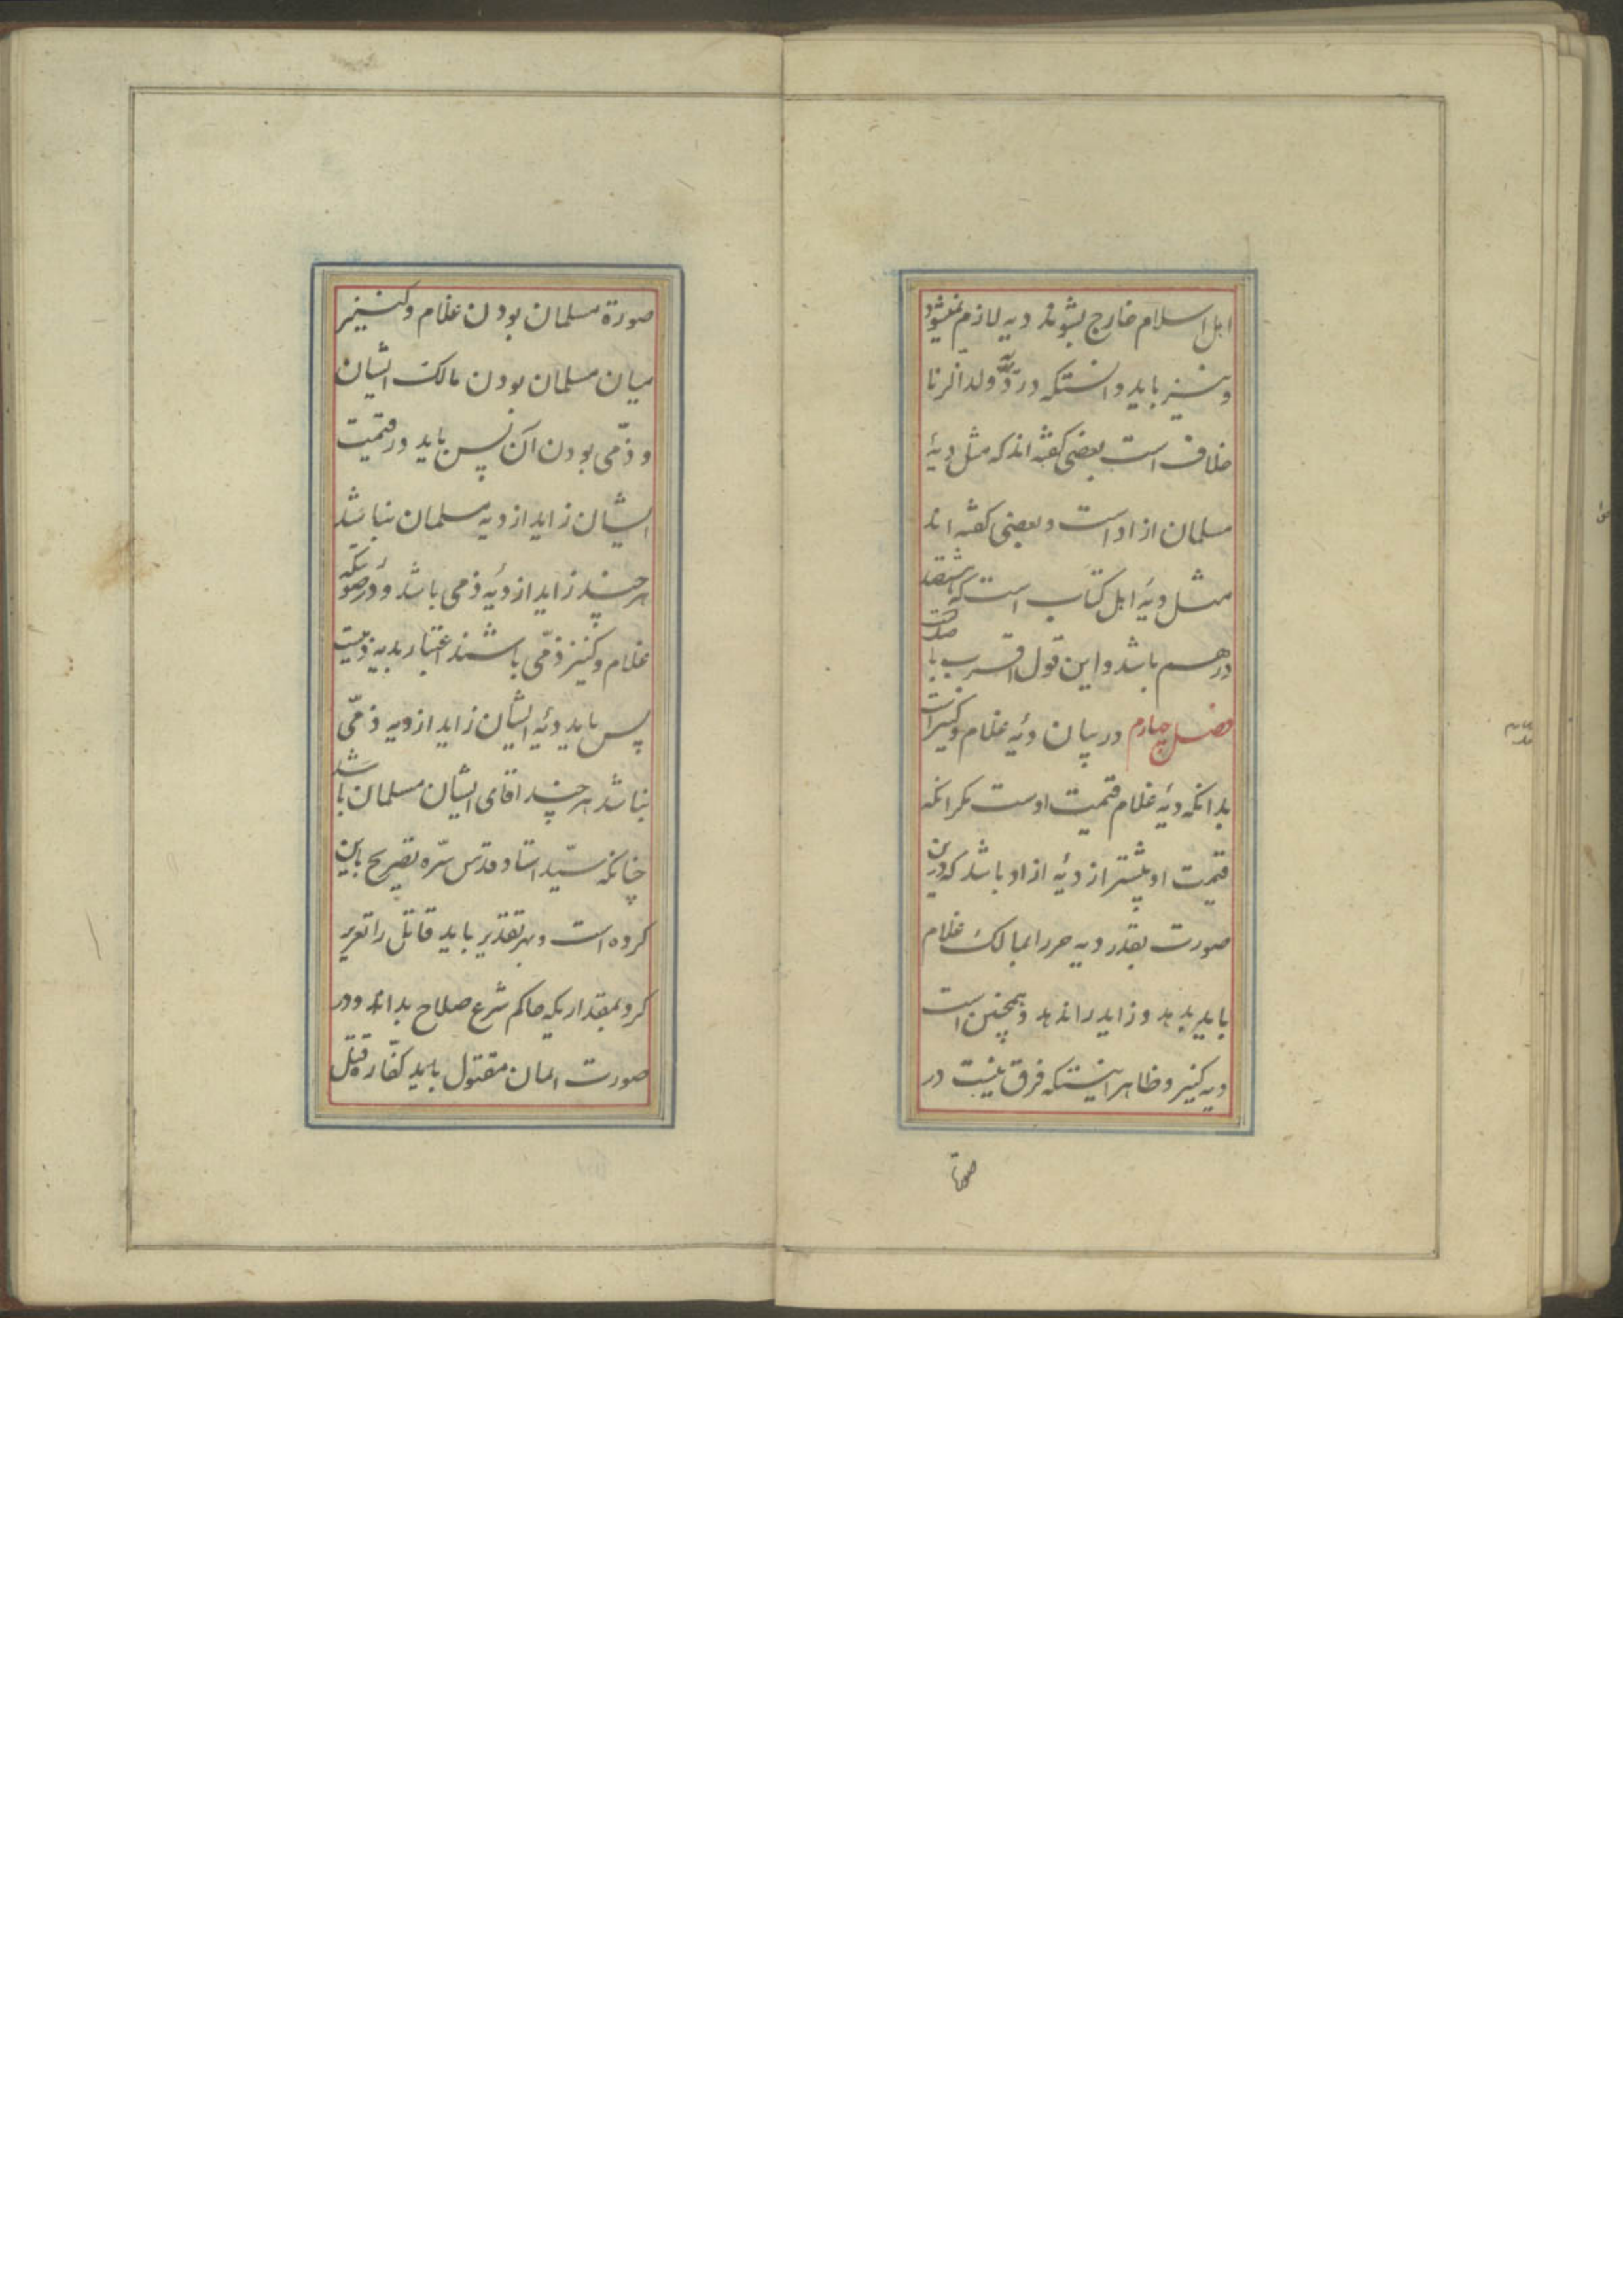 اهل اسلام خارج بشوند دیه لازم نمیشود
و نیز باید دانستکه در دیه ولد الزنا
خلاف است بعضی گفته اند که مثل دیهٔ
مسلمان ازاد است و بعضی گفته اند
مثل دیهٔ اهل کتاب است که هشتصد
درهم باشد و این قول اقرب با
فصل چهارم در بیان دیهٔ غلام و کنیز است
بدانکه دیهٔ غلام قیمت اوست مکر انکه
قیمت او بیشتر از دیهٔ ازاد باشد که درین
صورت بقدر دیه حر را بمالک غلام
باید بدهد و زاید را ندهد و همچنین است
دیه کنیز و ظاهر اینستکه فرق نیست در
صورة
صورة مسلمان بودن غلام و کنیز
میان مسلمان بودن مالک ایشان
و ذمّی بودن آن پس باید در قیمت
ایشان زاید از دیه مسلمان نباشد
هر چند زاید از دیهٔ ذمی باشد و در صورتیکه
غلام و کنیز ذمّی باشند اعتبار بدیه ذمیست
پس باید دیهٔ ایشان زاید از دیه ذمّی
نباشد هر چند اقای ایشان مسلمان باشد
چنانکه سیّد استاد قدّس سّره تصریح باین
کرده است و بهر تقدیر باید قاتل را تعزیر
کرد بمقداریکه حاکم شرع صلاح بداند و در
صورت ایمان مقتول باید کفّاره قتل